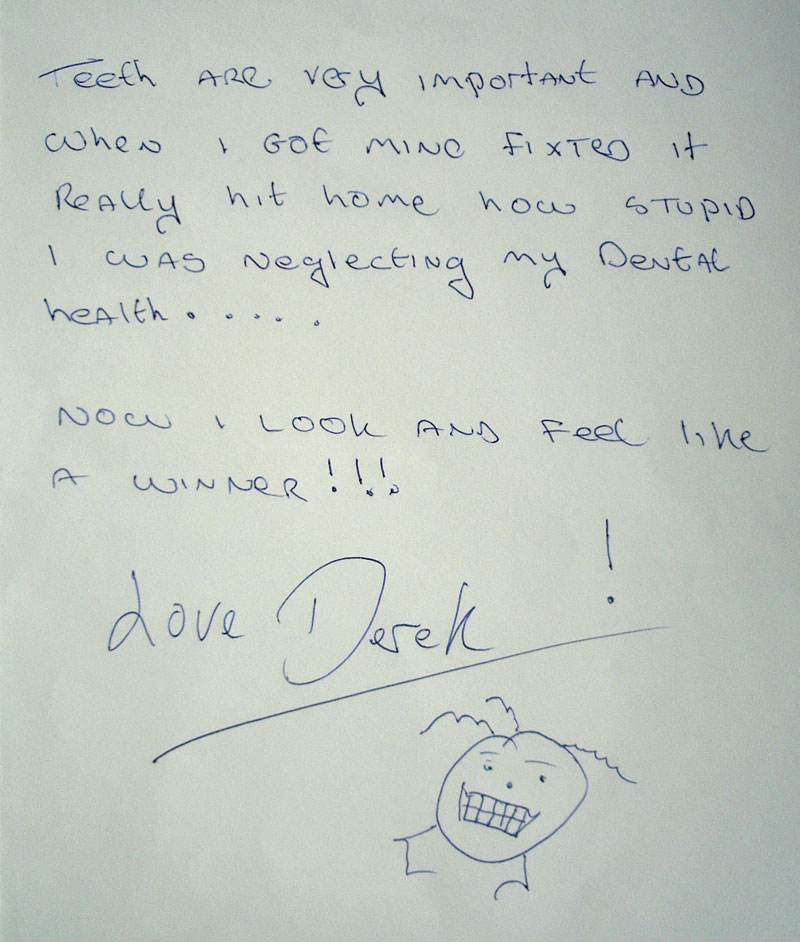 Teeth ARE very important AND
when I GOT MINE FIXTED it
Really hit home how STUPID
I WAS Neglecting my DENTAL
heAlth.....
NOW I LOOK AND Feel like
A WINNER!!!
Love Derek!